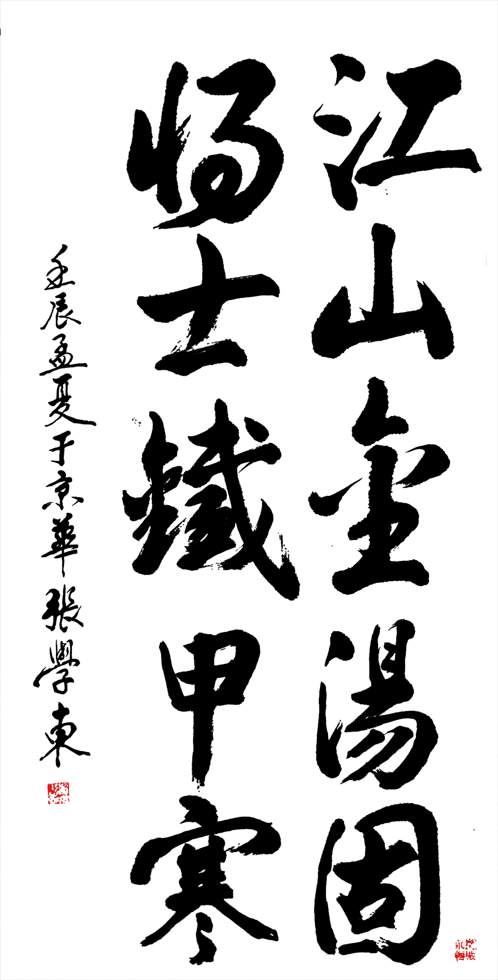 江山金湯固
將士鐵甲寒
壬辰孟夏于京華張學東